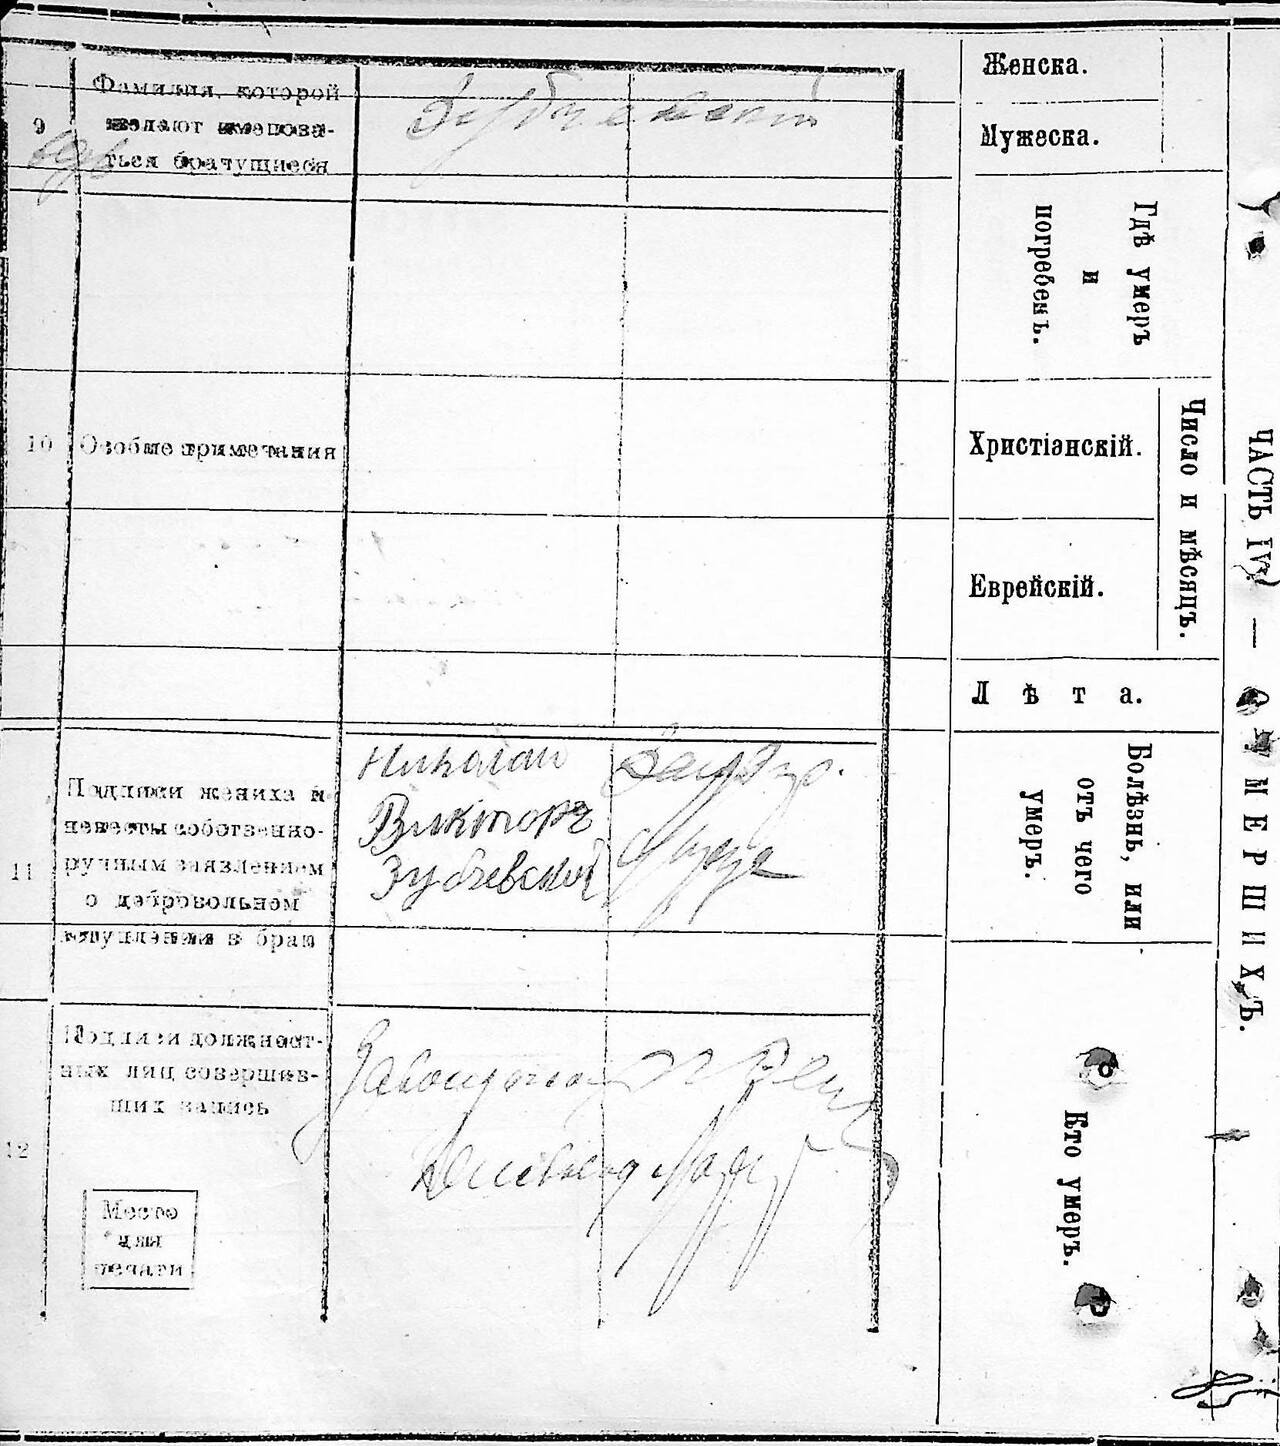 9
Фамилия, которой
желают именова-
ться брачущиеся
Зубчевский
10
Особые примечания
11
Подписи жениха и
невесты собственно-
ручным заявлением
о добровольном
вступлении в брак
Николай
Викторъ
Зубчевский
12
Подписи должност-
ных лиц совершив-
ших запись
Место
для
печати
Женска.
Мужеска.
Гдѣ умеръ
и
погребенъ.
Христіанскій.
Еврейскій.
Число и мѣсяцъ.
Лѣта.
Болѣзнь, или
отъ чего
умеръ.
Кто умеръ.
ЧАСТЬ IV. — О УМЕРШИХЪ.